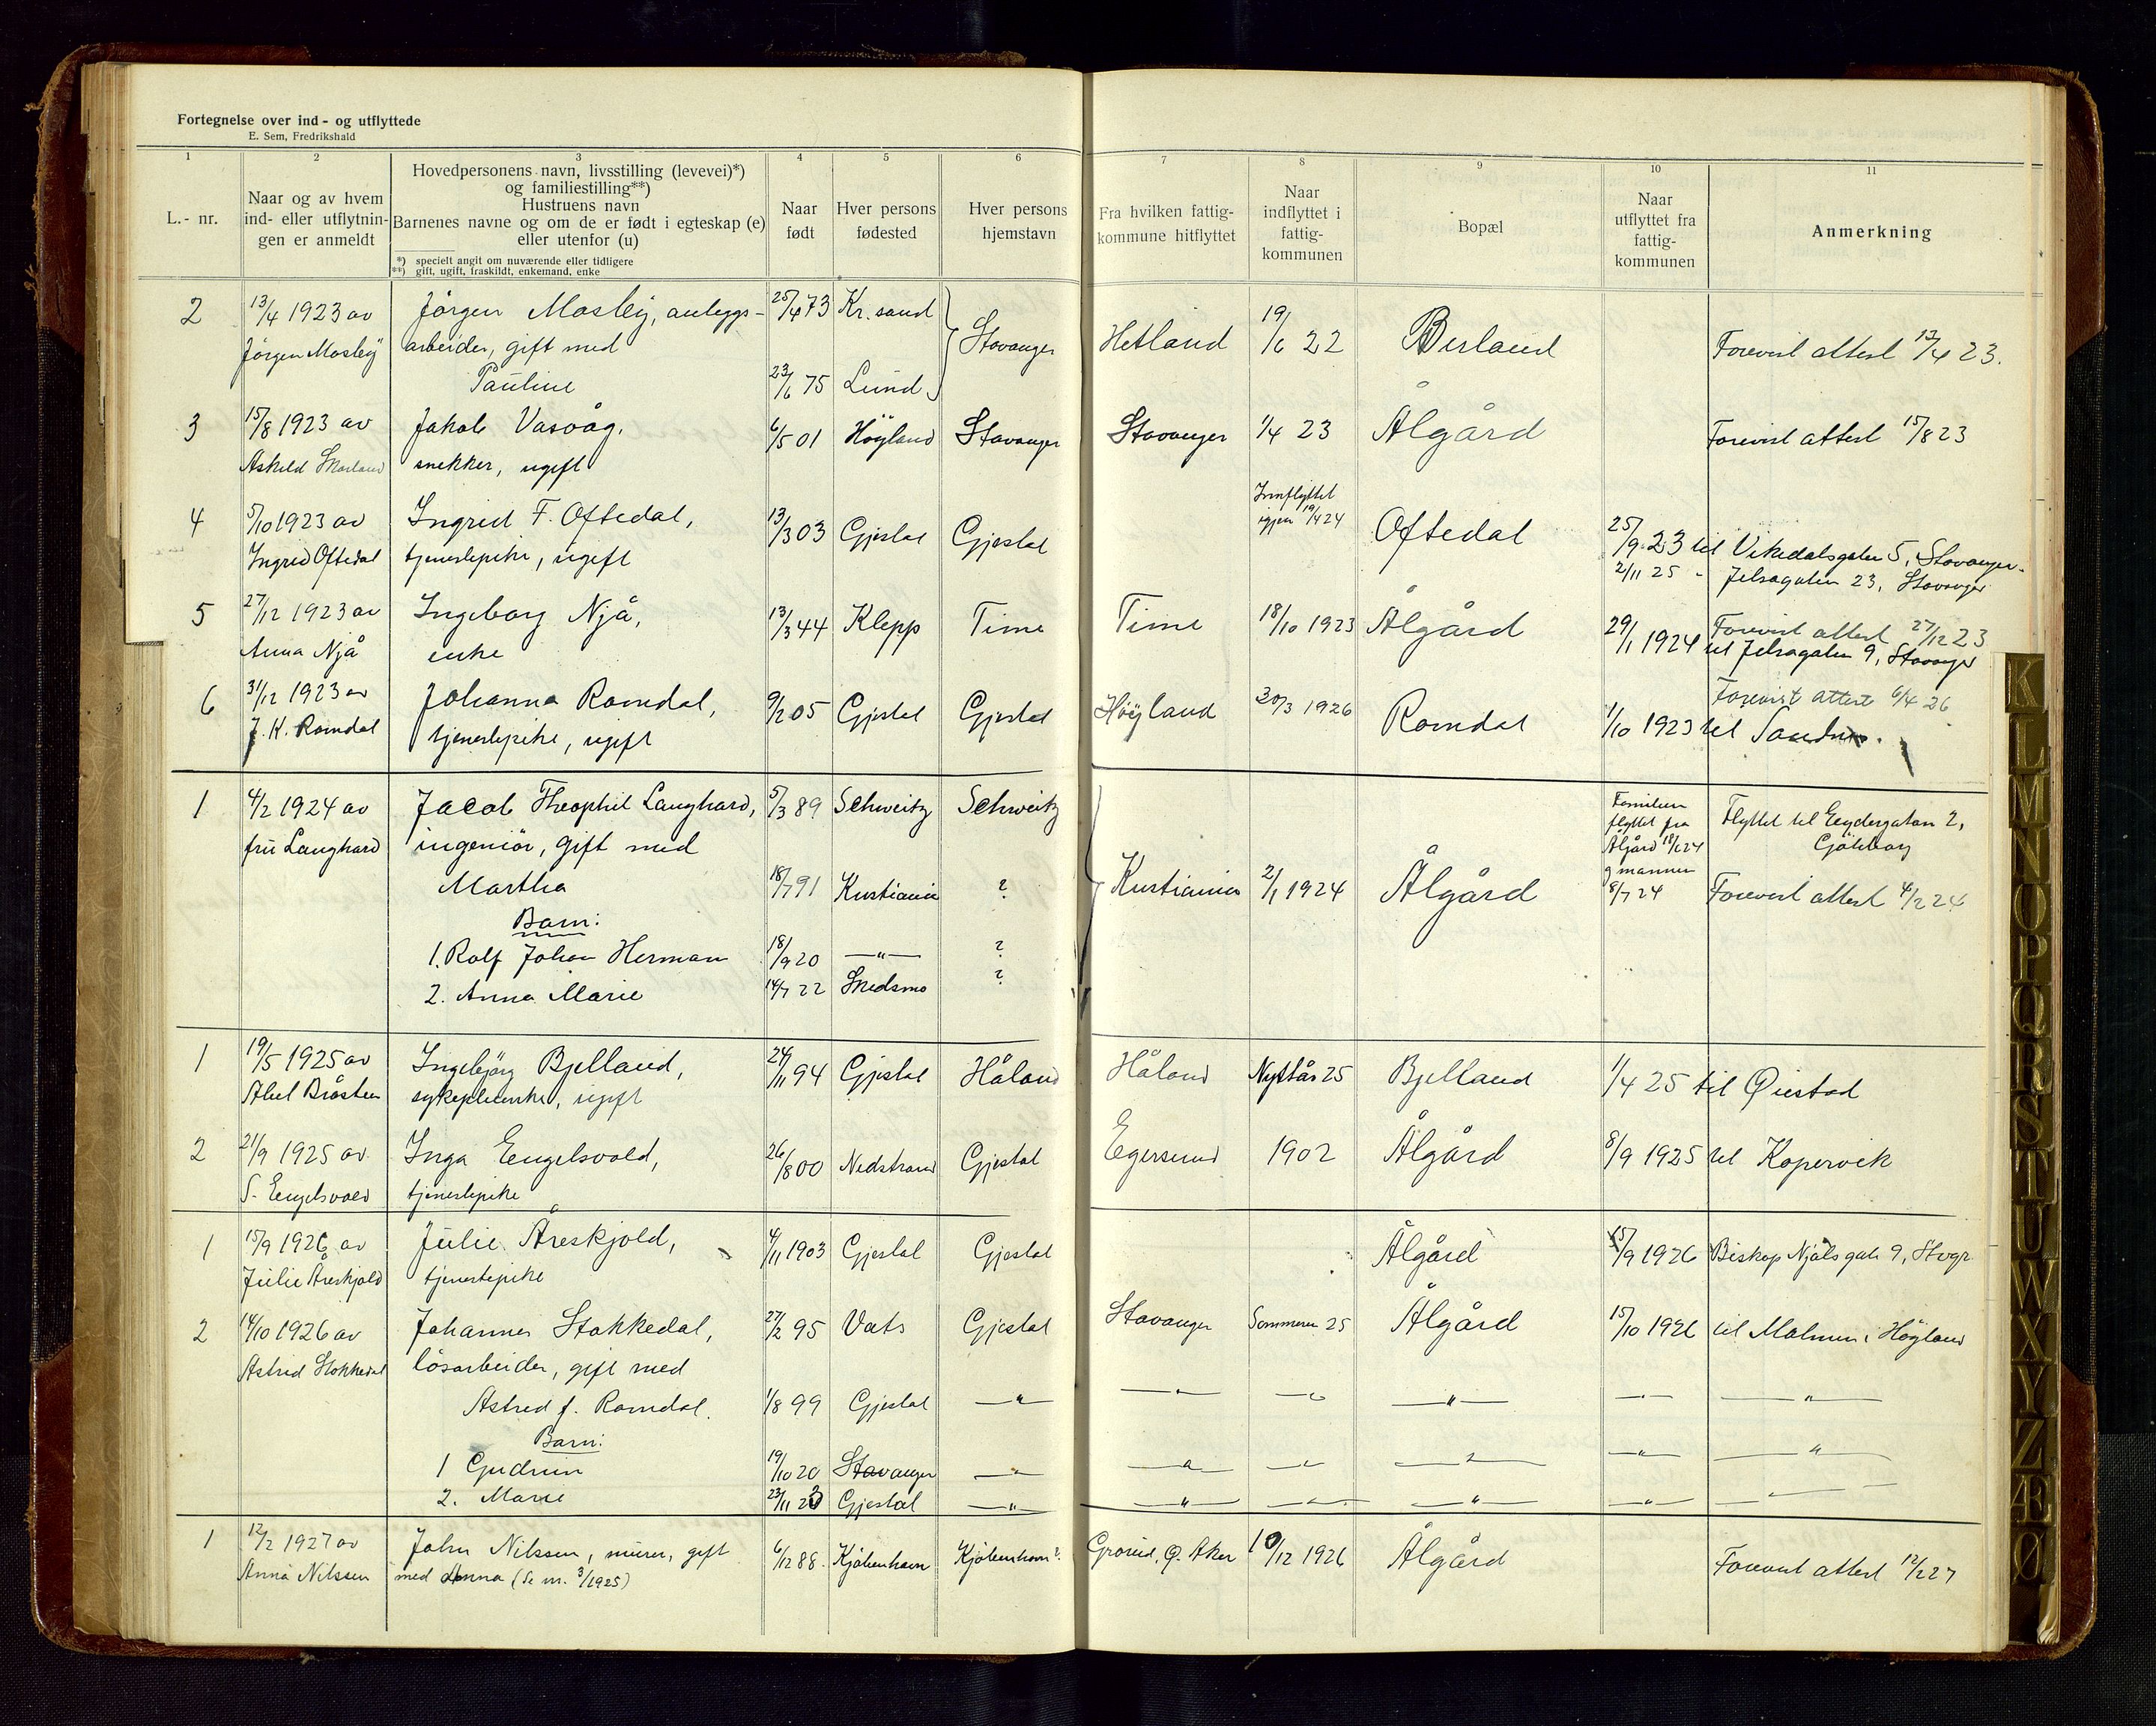 Fortegnelse over ind- og utflyttede
E. Sem, Fredrikshald
1 2 3 4 5 6 7 8 9 10 11
L.- nr.
Naar og av hvem ind- eller utflytnin-gen er anmeldt
Hovedpersonens navn, livsstilling (levevei)*)
og familiestilling**)
Hustruens navn
Barnenes navne og om de er født i egteskap (e)
eller utenfor (u)
*) specielt angit om nuværende eller tidligere
**) gift, ugift, fraskildt, enkemand, enke
Naar født
Hver persons fødested
Hver persons hjemstavn
Fra hvilken fattig-kommune hitflyttet
Naar indflyttet i fattig-kommunen
Bopæl
Naar utflyttet fra fattig-kommunen
Anmerkning
2 13/4 1923 av Jörgen Mosleÿ, anleggs- 25/4 73 Kr.sand Stavanger Hetland 19/6 22 Berland Forevist attest 13/4 23.
Jörgen Mosleÿ arbeider, gift med
Pauline 23/6 75 Lund
3 15/8 1923 av Jakob Vasvåg, 6/5 01 Höyland Stavanger Stavanger 1/4 23 Ålgård Forevist attest 15/8 23
Askeld snekker, ugift
4 5/10 1923 av Ingrid F. Oftedal, 13/3 03 Gjestal Gjestal Innflyttet igjen 19/4 24 Oftedal 25/9 23 til Vikedalsgaten 5, Stavanger.
Ingrid Oftedal tjenestepike, ugift 2/11 25 - Jelsagaten 23, Stavanger
5 27/12 1923 av Ingeborg Njå, 13/3 44 Klepp Time Time 18/10 1923 Ålgård 29/1 1924 Forevist attest 27/12 23
Anna Njå enke til Jelsagaten 9, Stavanger
6 31/12 1923 av Johanna Romdal, 9/2 05 Gjestal Gjestal Höyland 20/3 1926 Romdal 1/10 1923 til Sandnes. Forevist attest 6/4 26
J. K. Romdal tjenestepike, ugift
1 4/2 1924 av Jacob Theophil Langhard, 5/3 89 Schweitz Schweitz Kristiania 2/1 1924 Ålgård Familien flyttet fra Ålgård 18/6 24 og mannen 8/7 24 Flyttet til 2, Göteborg
fru Langhard ingeniör, gift med
Martha 18/7 91 Kristiania ? Forevist attest 4/2 24
Barn:
1. Rolf Johan Herman 18/9 20 —"— ?
2. Anna Marie 14/7 22 Skedsmo ?
1 19/5 1925 av Ingebjörg Bjelland, 24/11 94 Gjestal Håland Håland Nyttår 25 Bjelland 1/4 25 til Øiestad
Abel Bråsten sykepleierske, ugift
2 21/9 1925 av Inga Engelsvold, 26/8 00 Nedstrand Gjestal Egersund 1902 Ålgård 8/9 1925 til Kopervik
S. Engelsvold tjenestepike
1 15/9 1926 av Julie Åreskjold, 4/11 1903 Gjestal Gjestal Ålgård 15/9 1926 Biskop Njåls gate 9, Stvgr
Julie Åreskjold tjenestepike
2 14/10 1926 av Johannes Stokkedal, 27/2 95 Vats Gjestal Stavanger Sommeren 25 Ålgård 15/10 1926 til Malmen i Höyland
Astrid Stokkedal lösarbeider, gift med
Astrid f. Romdal. 1/8 99 Gjestal —"— —"— —"— —"— —"— —"—
Barn:
1 Gudrun 19/10 20 Stavanger —"— —"— —"— —"— —"— —"—
2. Marie 23/11 23 Gjestal —"— —"— —"— —"— —"— —"—
1 12/2 1927 av John Nilssen, murer, gift 6/12 88. Kjöbenhavn Kjöbenhavn?. Grorud, Ö. Aker 10/12 1926 Ålgård Forevist attest 12/2 27
Anna Nilssen med Anna (Se nr. 3/1925)
K
L
M
N
O
P
Q
R
S
T
U
W
X
Y
Z
Æ
Ø